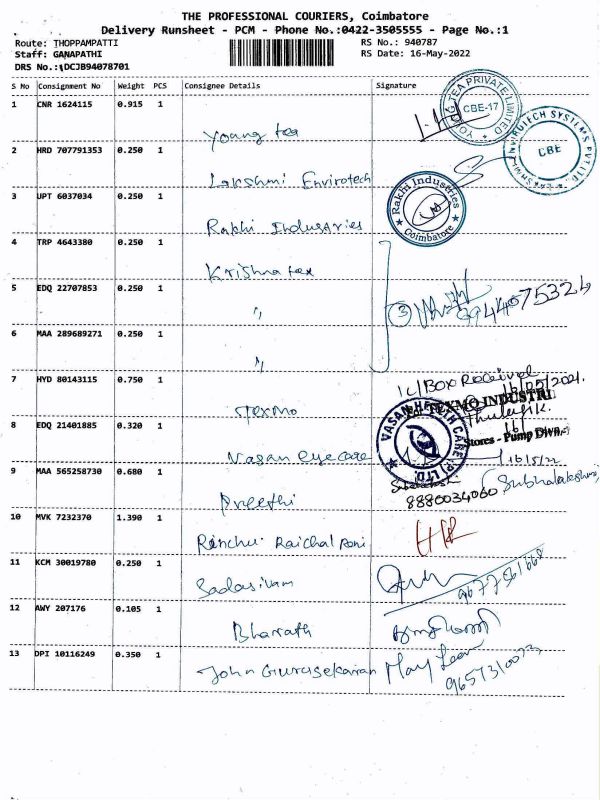 THE PROFESSIONAL COURIERS, Coimbatore
Delivery Runsheet - PCM - Phone No.:0422-3505555 - Page No.:1
Route: THOPPAMPATTI RS No.: 940787
Staff: GANAPATHI RS Date: 16-May-2022
DRS No.: DCJB94078701
S No Consignment No Weight PCS Consignee Details Signature
1 CNR 1624115 0.915 1 Young tea
YOUNG TEA PRIVATE LIMITED CBE-17
2 HRD 707791353 0.250 1 Lakshmi Envirotech
ENVIROTECH SYSTEMS PVT LTD. CBE
3 UPT 6037034 0.250 1 Rakhi Industries
Rakhi Industries Coimbatore
4 TRP 4643380 0.250 1 Krishna tex
5 EDQ 22707853 0.250 1 "
3 9944075324
6 MAA 289689271 0.250 1 "
7 HYD 80143115 0.750 1 Texmo
1 c/Box Received
TEXMO INDUSTRI
Stores - Pump Divn.
8 EDQ 21401885 0.320 1 Vasan eye care
VASAN HEALTH CARE (P) LTD.
16/5/22
9 MAA 565258730 0.680 1 Preethi
8880034060 (Subhalakshmi)
10 MVK 7232370 1.390 1 Renchu Raichal Roni
11 KCM 30019780 0.250 1 Sadasivam
12 AWY 207176 0.105 1 Bharath
13 DPI 10116249 0.350 1 John Gunasekaran
9657310073